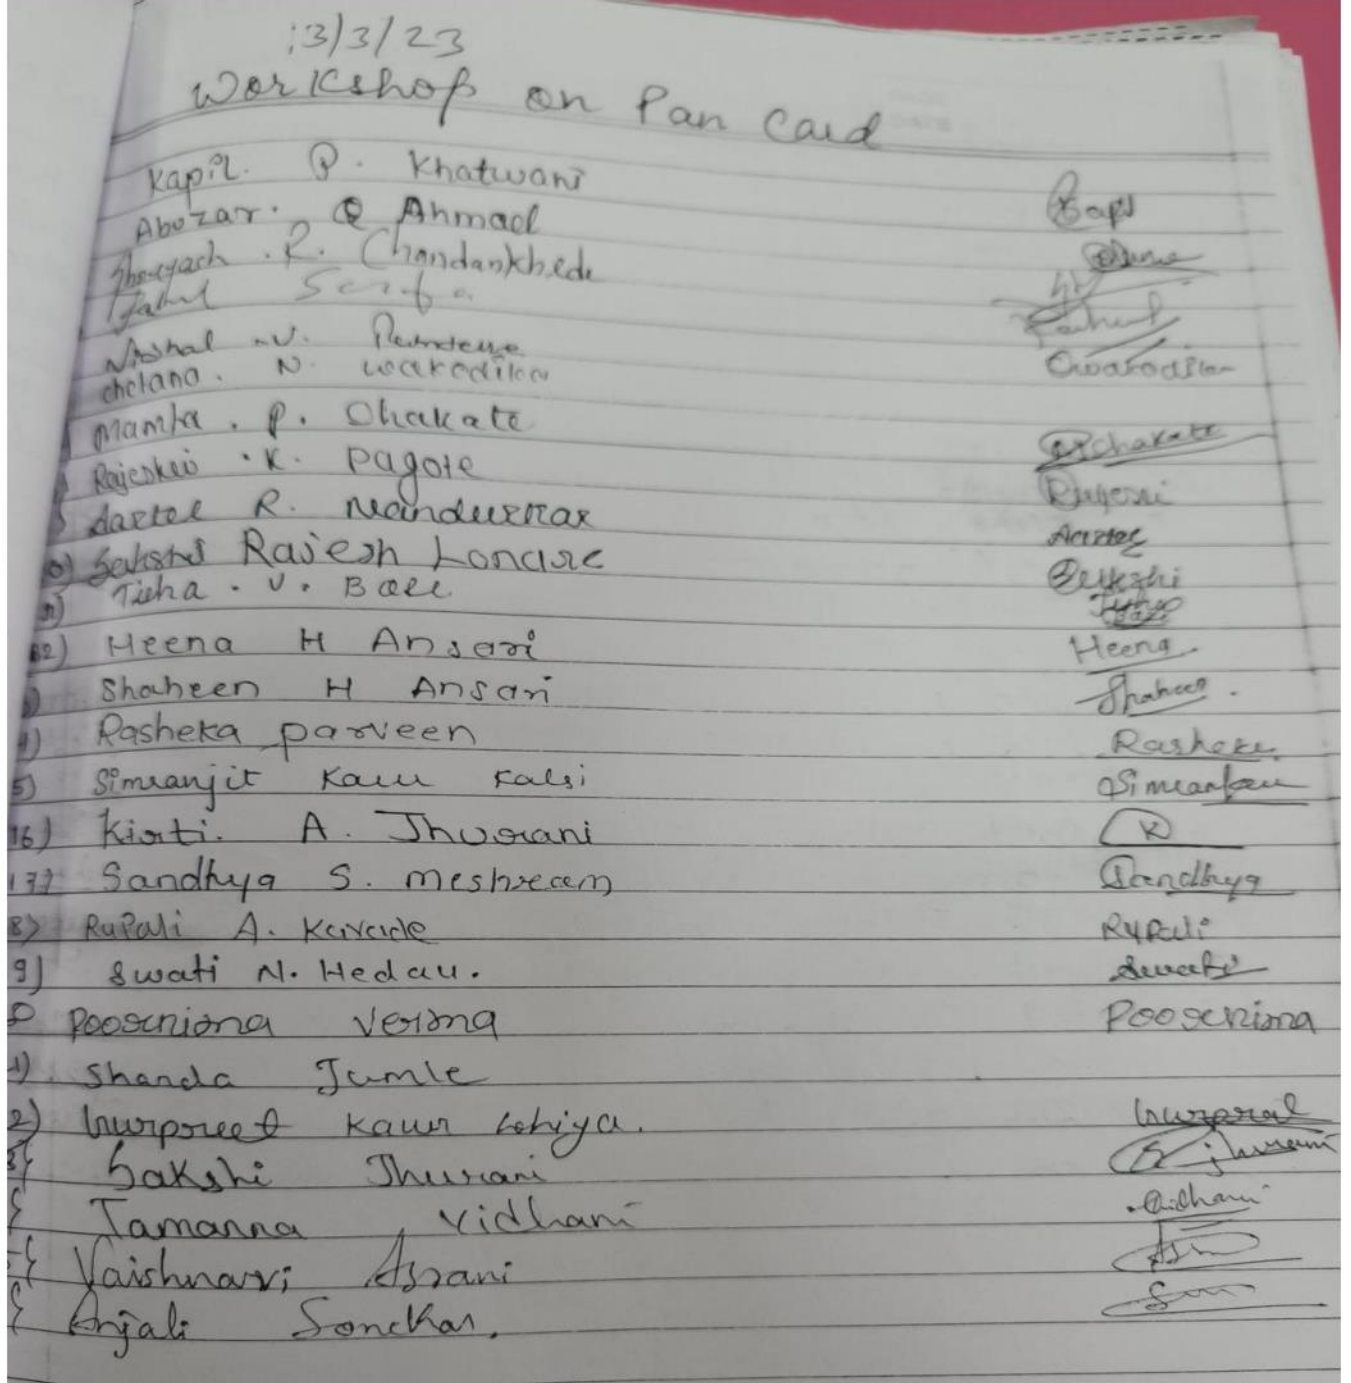 13/3/23
Workshop on Pan Card
Kapil. P. Khatwani
Abuzar. Q Ahmad
R. Chandankhede
V.
chetana. N. warodikar Owarodikar
Mamta. P. Dhakate
K. Pagote
Aartee R. Nandurkar Aartee
Sakshi Rajesh Lonare Sakshi
V. Bae
12) Heena H Ansari Heena.
Shaheen H Ansari Shaheen.
Rasheka parveen Rasheka
5) Simranjit Kaur Kalsi Simrankaur
16) Kirti. A. Jhurani K
17) Sandhya S. meshram Sandhya
8) RuPali A. Kavade RuPali
9) Swati N. Hedau. Swati
Poornima Verma Poornima
1) Shanda Jumle
2) Gurpreet Kaur Lohiya. Gurpreet
Sakshi Jhurani S jhurani
Tamanna Vidhani Vidhani
Vaishnavi Asrani
Anjali Sonekar.